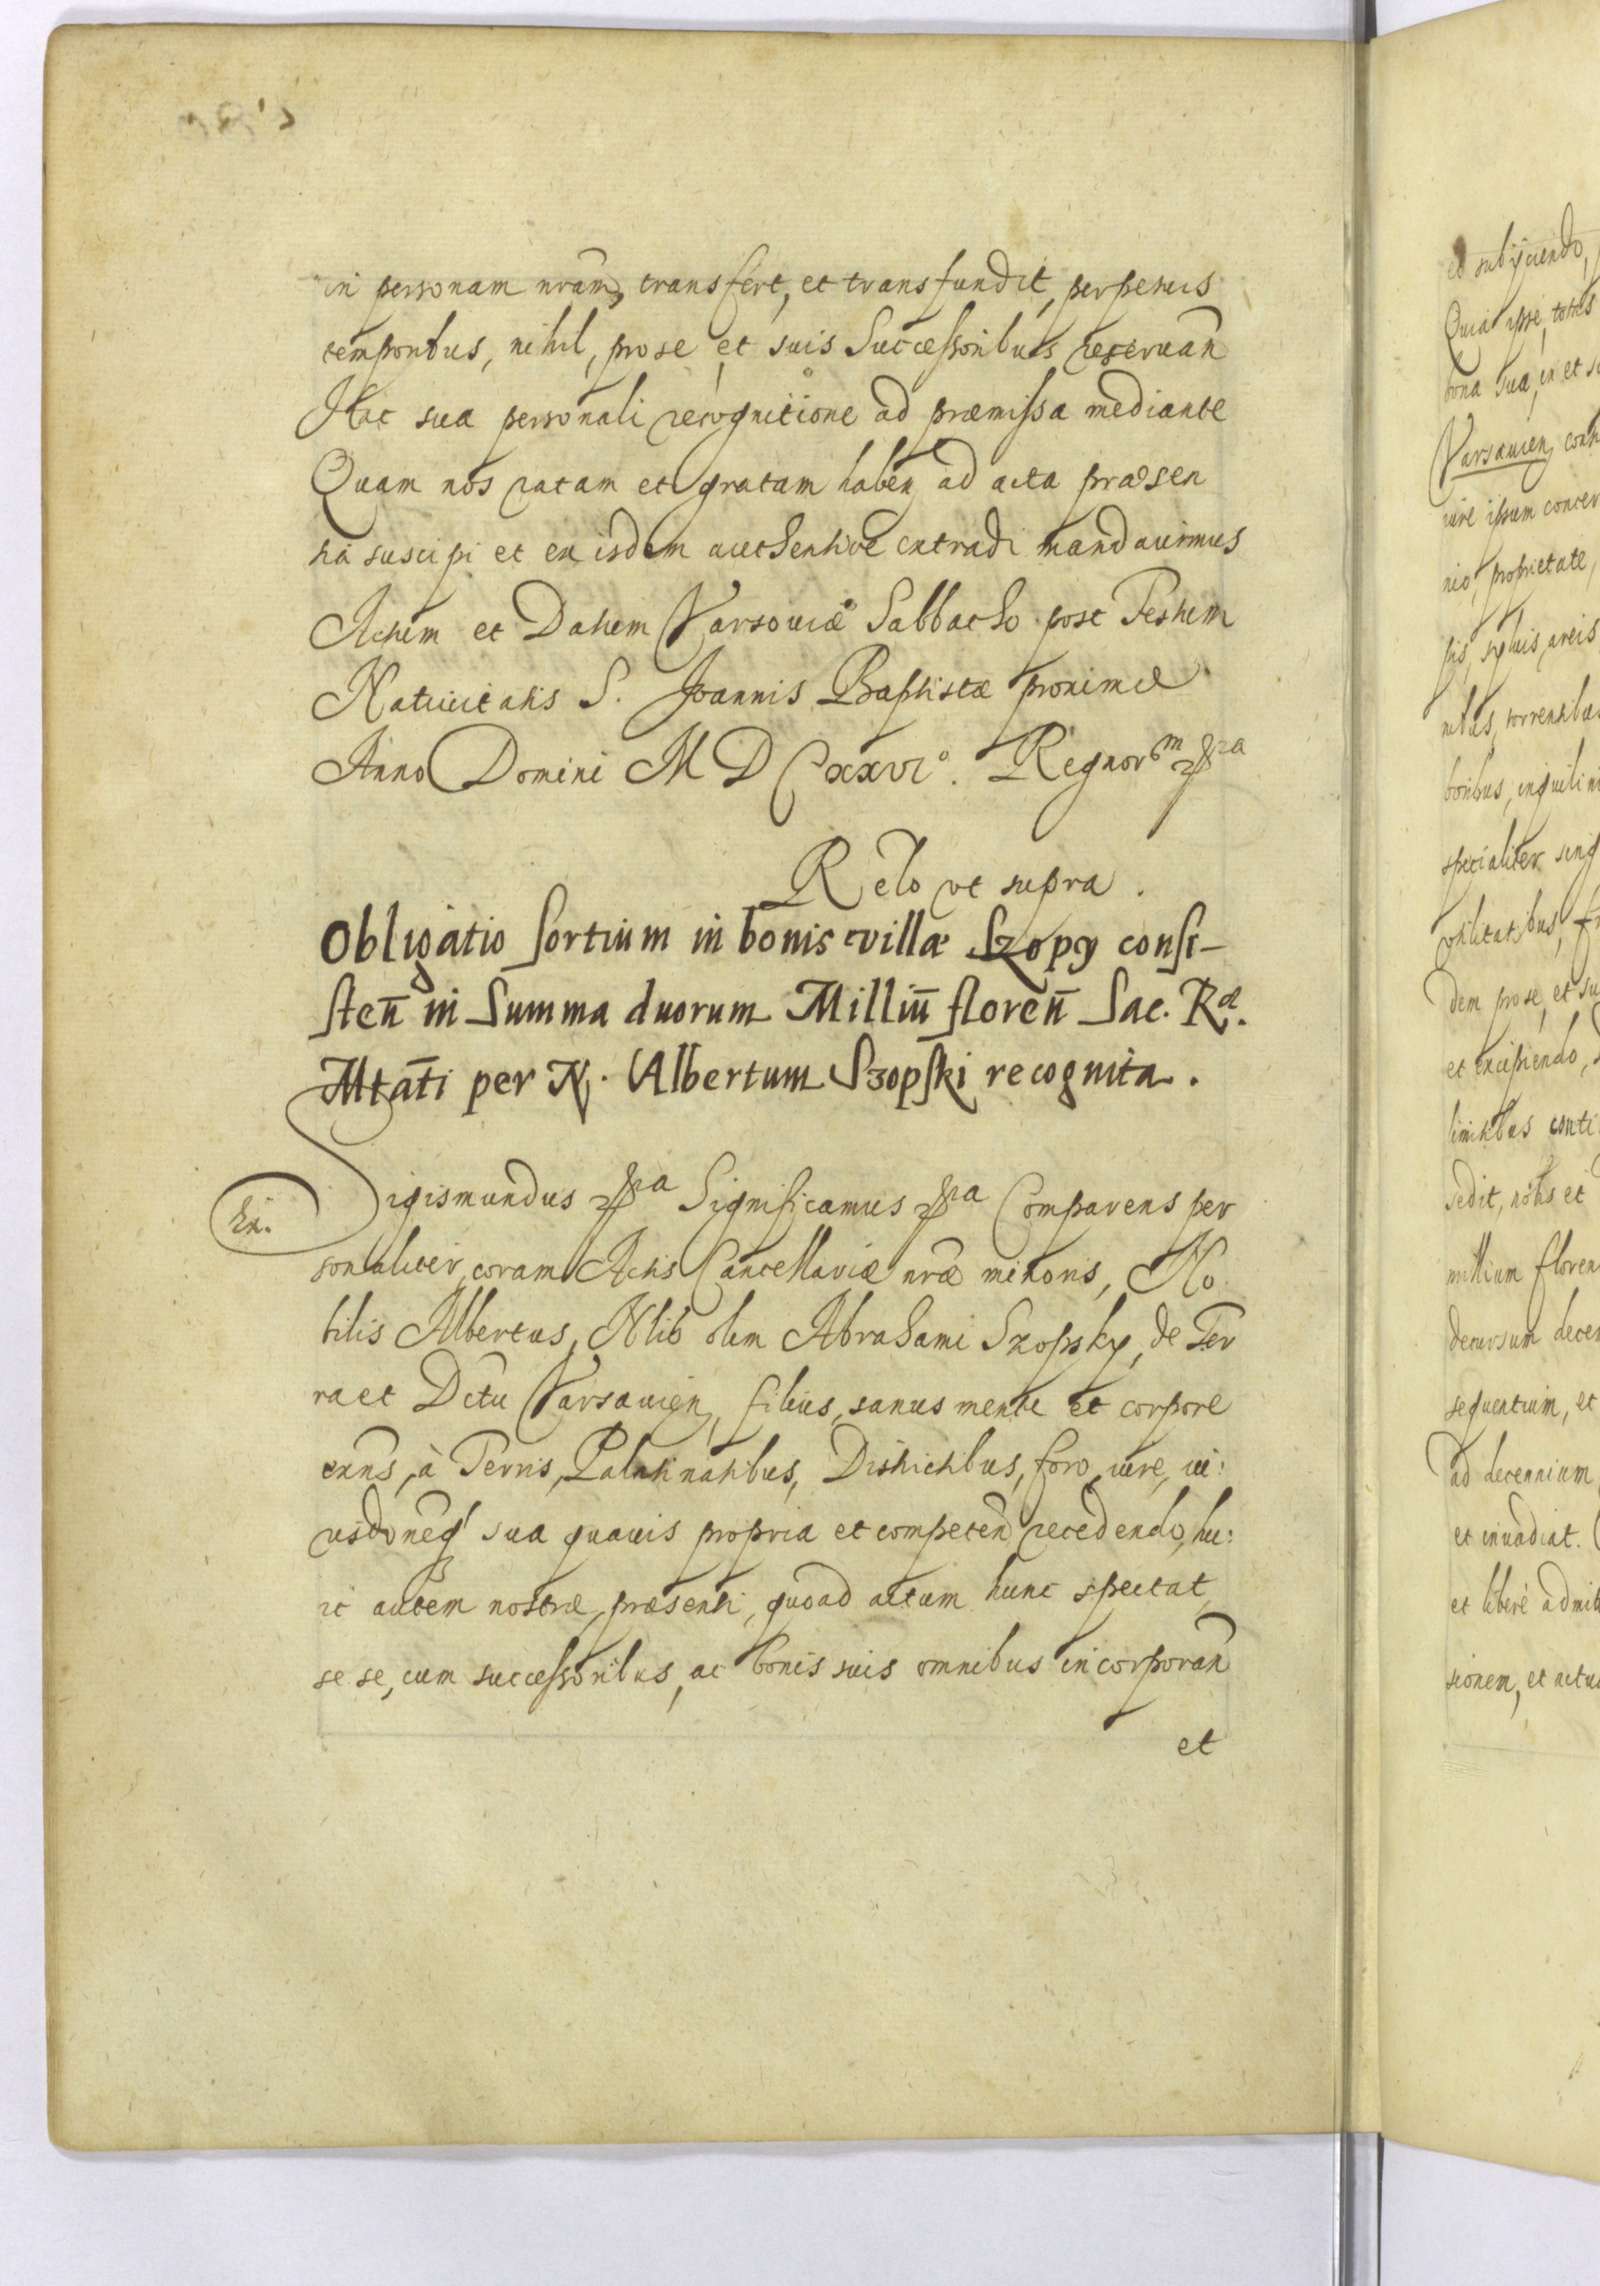 in personam nram, transfert, et transfundit, perpetuis
temporibus, nihil, pro se et suis Successoribus reseruan̄
Hac sua personali recognitione ad præmissa mediante
Quam nos ratam et gratam haben̄ ad acta præsen
tia suscipi et ex isdem authentice extradi mandauimus
Actum et Datum Varsouiæ Sabbatho post Festum
Natiuitatis S. Joannis Baptistæ proximo
Anno Domini MDCxxvi°. Regnorum ȹra
Relo vt supra.
Obligatio sortium in bonis villæ Szopy consi-
sten̄ in Summa duorum Milliū floren̄ Sac. Ræ.
Mtāti per N. Albertum Szopski recognita.
Ex.
Sigismundus ȹra Significamus ȹra Comparens per
sonaliter coram Actis Cancellariæ nræ minoris, No
bilis Albertus, Nlis olim Abrahami Szopsky, de Ter
ra et Dctu Varsauien̄, filius, sanus mente et corpore
exns, à Terris, Palatinatibus, Districtibus, foro, iure, iu:
risdoneq́ sua quauis propria et competen̄ recedendo, hu:
ic autem nostræ præsenti, quoad actum hunc spectat,
se se, cum successoribus, ac bonis suis omnibus incorporan̄
et
et subijciendo,
Quia ipse, totas
bona sua, in et su
Varsauien,
iure ipsum concer
nio, proprietate,
siluis, areis
torrentibus
inquilini
specialiter sing
vtilitatibus, fr
dem pro se, et su
et excipiendo,
limitibus conti
sedit, nobis et
millium floren
decursum decen
sequentium, et
ad decennium
et inuadiat.
et liberè admit
sionem, et actu